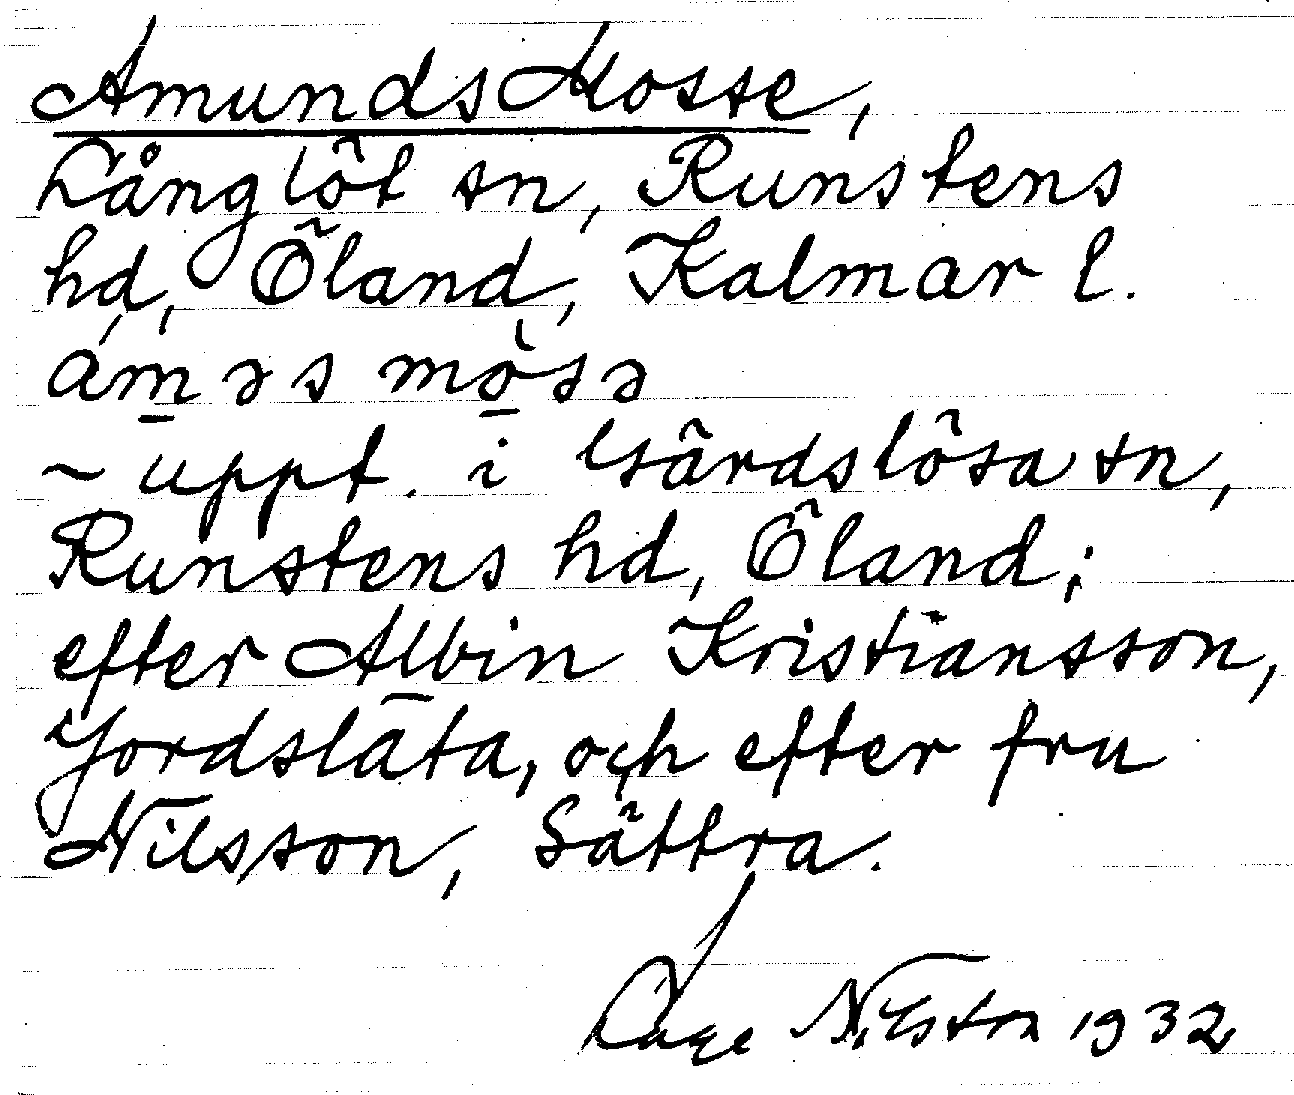 Amunds Mosse,
Långlöt sn, Runstens
hd, Öland, Kalmar l.
ám̲əs mò̲sə
~ uppt. i Gärdslösa sn,
Runstens hd, Öland;
efter Albin Kristiansson,
Jordsläta, och efter fru
Nilsson, Sättra.
Lage Nilsson 1932